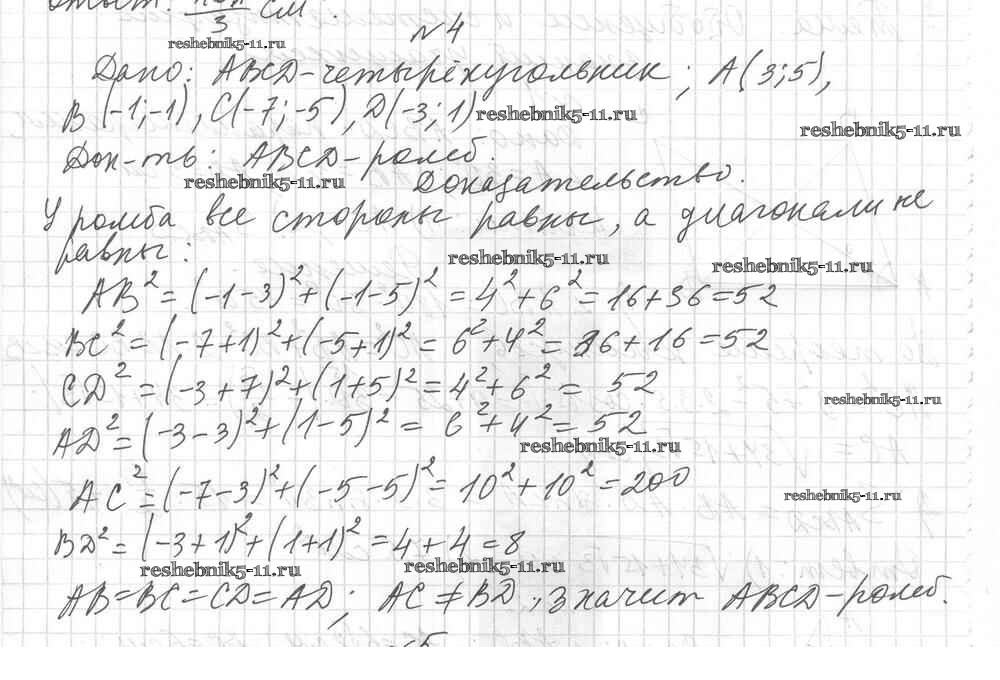 см.
3
reshebnik5-11.ru
№4
Дано: ABCD-четырёхугольник; A(3;5),
B(-1;-1), C(-7;-5), D(-3;1) reshebnik5-11.ru
reshebnik5-11.ru
Док-ть: ABCD-ромб.
reshebnik5-11.ru
Доказательство.
У ромба все стороны равны, а диагонали не
равны:
reshebnik5-11.ru
reshebnik5-11.ru
AB² = (-1-3)² + (-1-5)² = 4² + 6² = 16+36 = 52
BC² = (-7+1)² + (-5+1)² = 6² + 4² = 36+16 = 52
CD² = (-3+7)² + (1+5)² = 4² + 6² = 52
reshebnik5-11.ru
AD² = (-3-3)² + (1-5)² = 6² + 4² = 52
reshebnik5-11.ru
AC² = (-7-3)² + (-5-5)² = 10² + 10² = 200
reshebnik5-11.ru
BD² = (-3+1)² + (1+1)² = 4+4 = 8
reshebnik5-11.ru
reshebnik5-11.ru
AB=BC=CD=AD; AC≠BD, значит ABCD-ромб.